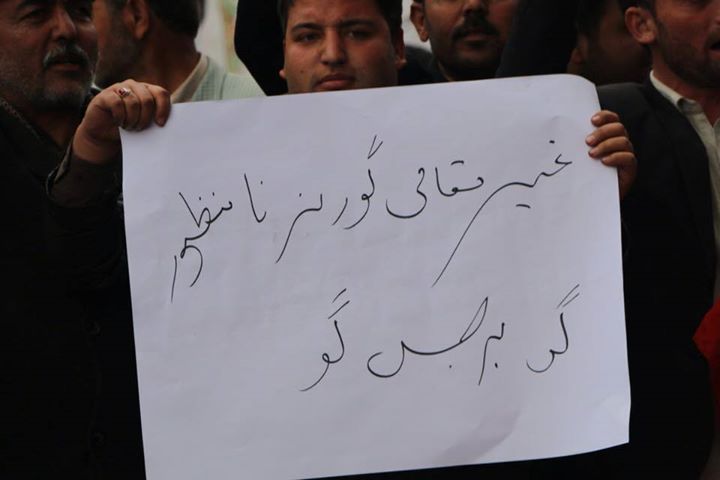 غیر مقامی گورنر نا منظور
گو برجیس گو